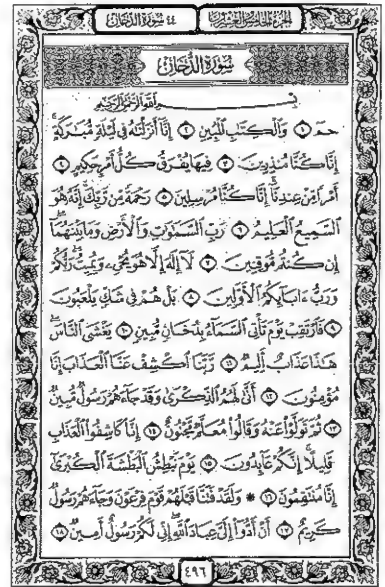 الجزء الخامس والعشرون
٤٤ سورة الدخان
سُورَةُ الدُّخَانِ
بِسْمِ اللَّهِ الرَّحْمَٰنِ الرَّحِيمِ
حمٓ ١ وَالْكِتَابِ الْمُبِينِ ٢ إِنَّا أَنزَلْنَاهُ فِي لَيْلَةٍ مُّبَارَكَةٍ ۚ
إِنَّا كُنَّا مُنذِرِينَ ٣ فِيهَا يُفْرَقُ كُلُّ أَمْرٍ حَكِيمٍ ٤
أَمْرًا مِّنْ عِندِنَا ۚ إِنَّا كُنَّا مُرْسِلِينَ ٥ رَحْمَةً مِّن رَّبِّكَ ۚ إِنَّهُ هُوَ
السَّمِيعُ الْعَلِيمُ ٦ رَبِّ السَّمَاوَاتِ وَالْأَرْضِ وَمَا بَيْنَهُمَا ۖ
إِن كُنتُم مُّوقِنِينَ ٧ لَا إِلَٰهَ إِلَّا هُوَ يُحْيِي وَيُمِيتُ ۖ رَبُّكُمْ
وَرَبُّ ءَابَآئِكُمُ الْأَوَّلِينَ ٨ بَلْ هُمْ فِي شَكٍّ يَلْعَبُونَ
٩ فَارْتَقِبْ يَوْمَ تَأْتِي السَّمَآءُ بِدُخَانٍ مُّبِينٍ ١٠ يَغْشَى النَّاسَ ۖ
هَٰذَا عَذَابٌ أَلِيمٌ ١١ رَّبَّنَا اكْشِفْ عَنَّا الْعَذَابَ إِنَّا
مُؤْمِنُونَ ١٢ أَنَّىٰ لَهُمُ الذِّكْرَىٰ وَقَدْ جَآءَهُمْ رَسُولٌ مُّبِينٌ
١٣ ثُمَّ تَوَلَّوْا عَنْهُ وَقَالُوا مُعَلَّمٌ مَّجْنُونٌ ١٤ إِنَّا كَاشِفُوا الْعَذَابِ
قَلِيلًا ۚ إِنَّكُمْ عَآئِدُونَ ١٥ يَوْمَ نَبْطِشُ الْبَطْشَةَ الْكُبْرَىٰ
إِنَّا مُنتَقِمُونَ ١٦ ۞ وَلَقَدْ فَتَنَّا قَبْلَهُمْ قَوْمَ فِرْعَوْنَ وَجَآءَهُمْ رَسُولٌ
كَرِيمٌ ١٧ أَنْ أَدُّوا إِلَيَّ عِبَادَ اللَّهِ ۖ إِنِّي لَكُمْ رَسُولٌ أَمِينٌ ١٨
٤٩٦